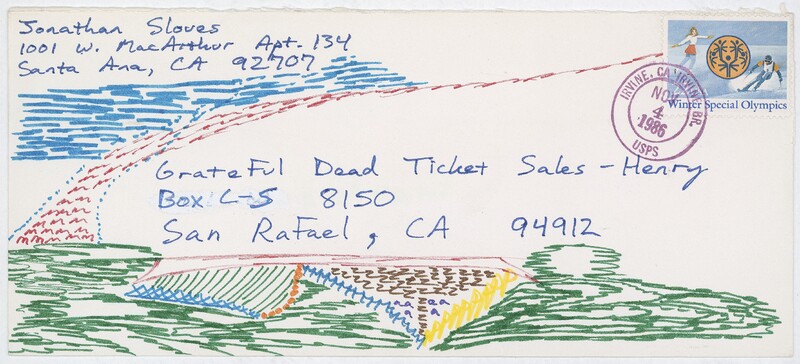 Jonathan Sloves
1001 W. MacArthur Apt. 134
Santa Ana, CA 92707
Winter Special Olympics
IRVINE, CA, IRVINE BR.
NOV
4
1986
USPS
Grateful Dead Ticket Sales - Henry
Box C-S 8150
San Rafael, CA 94912